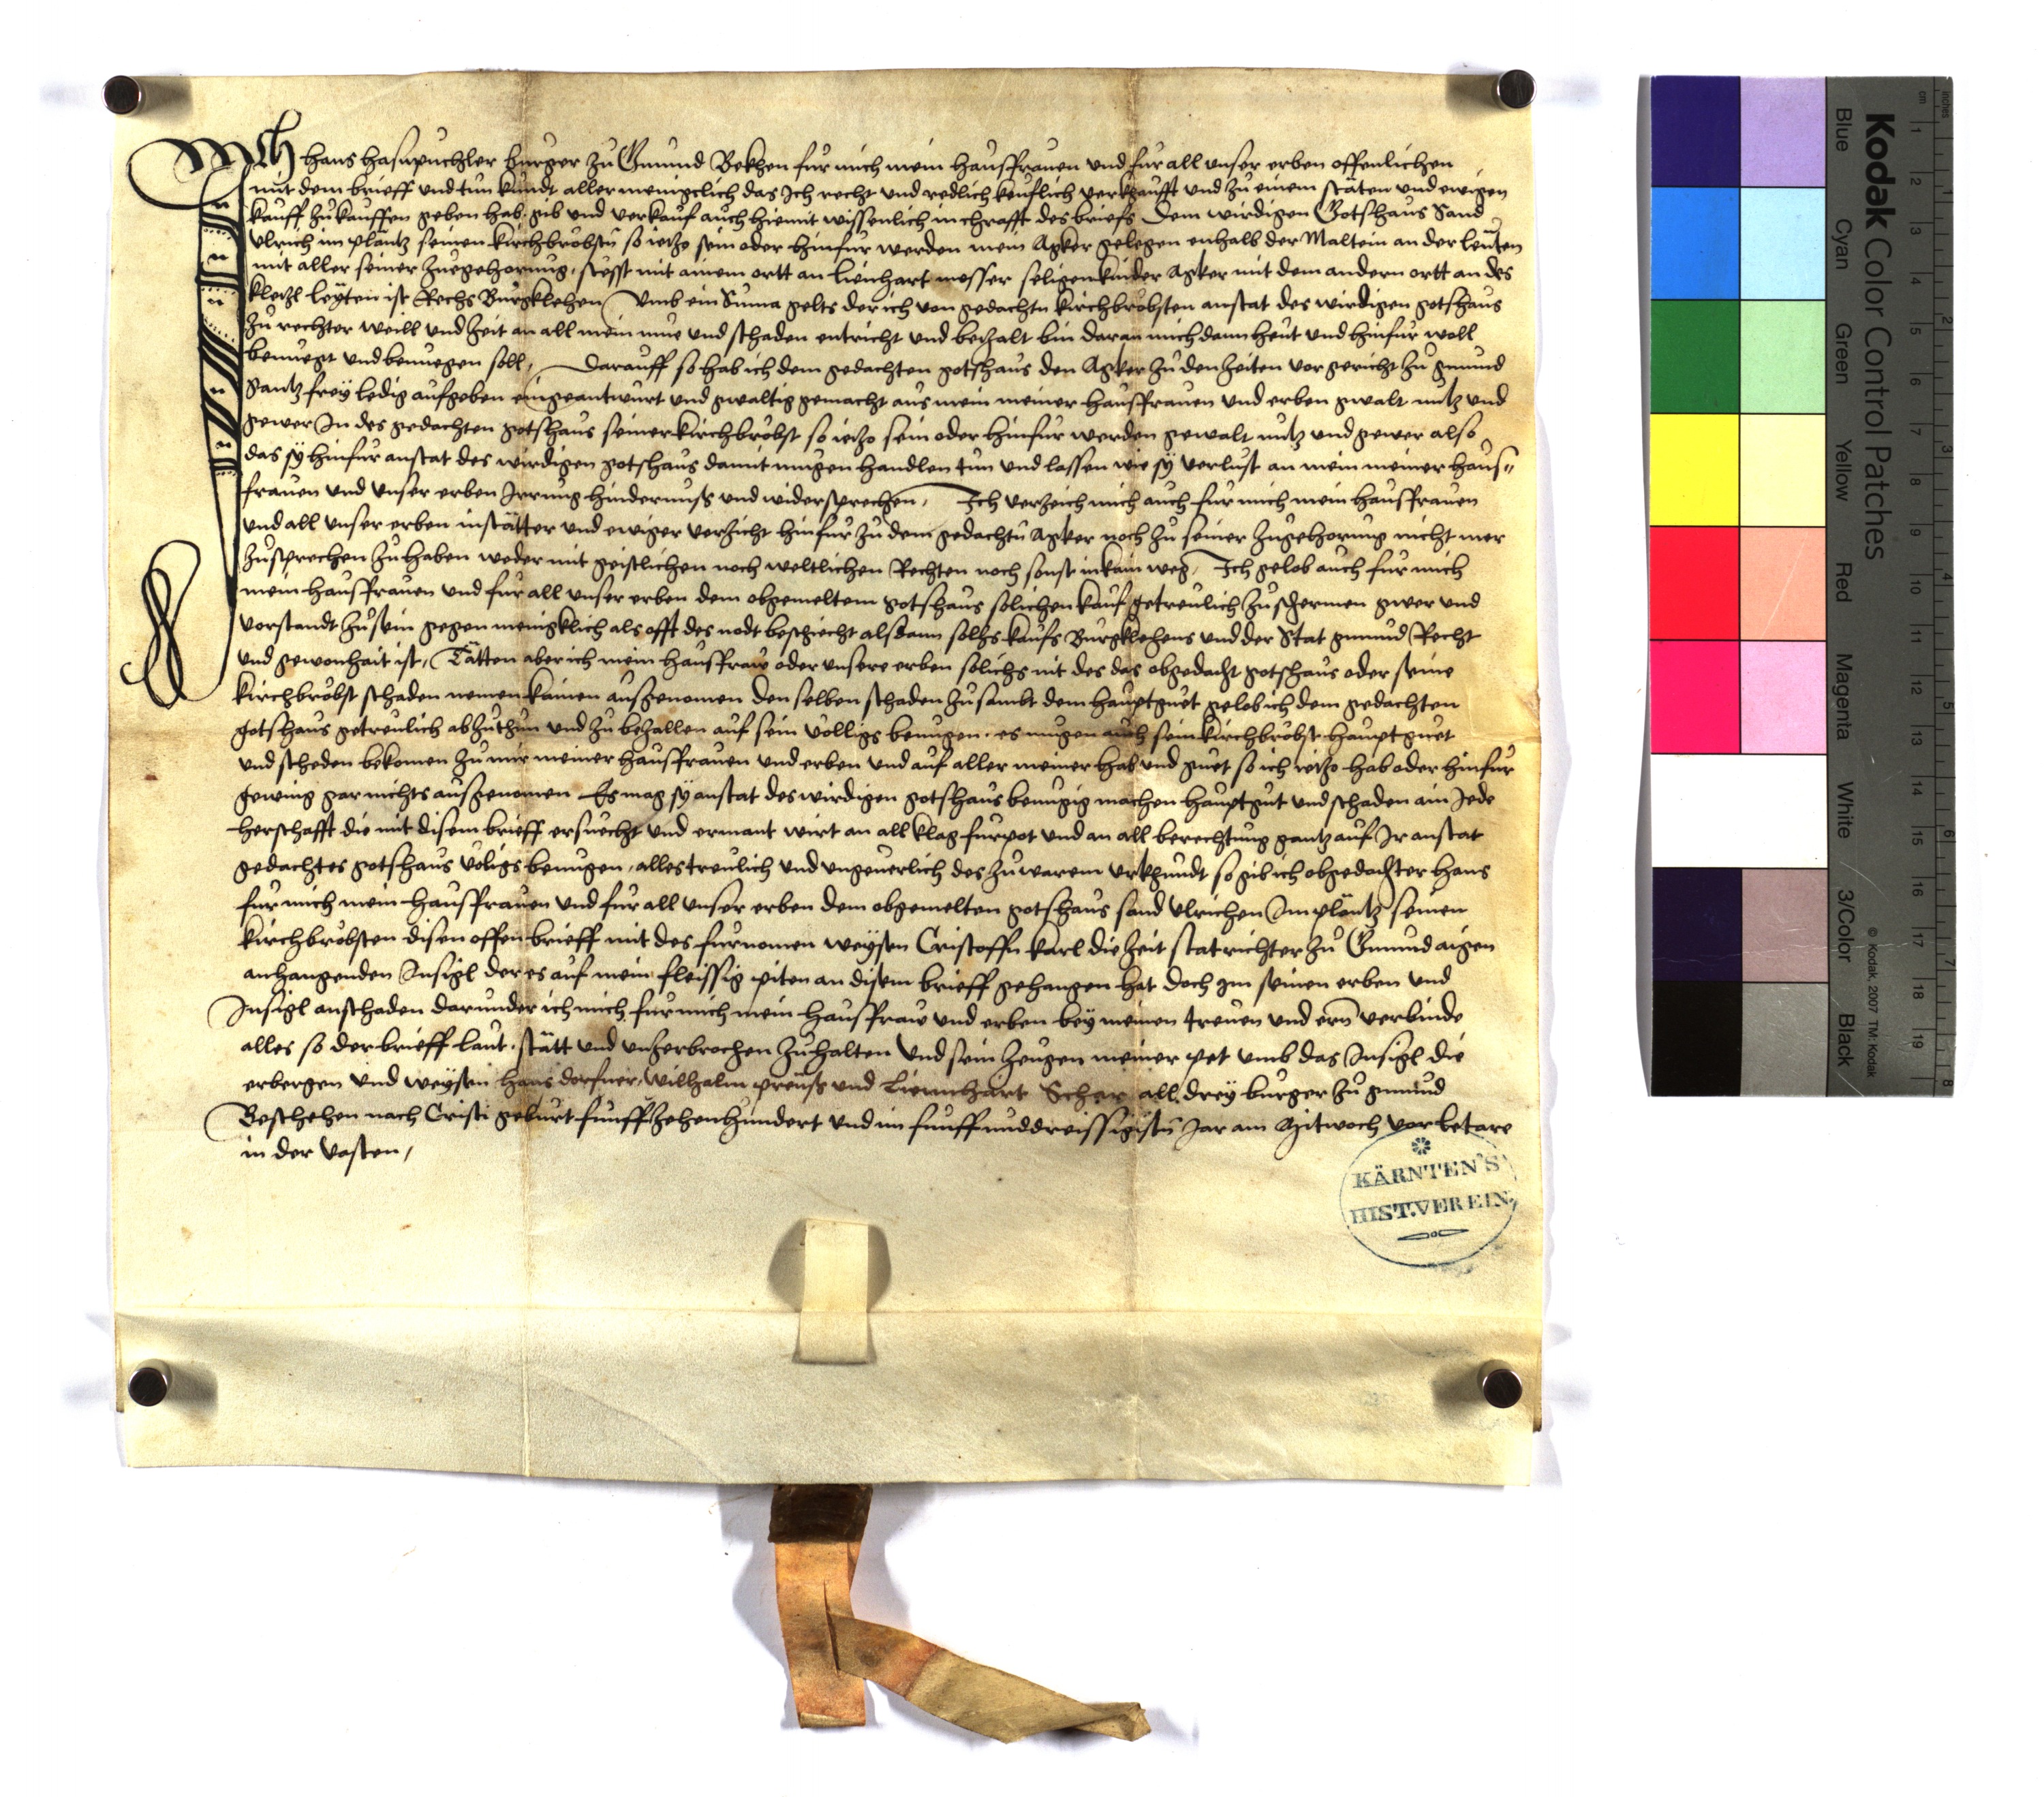 Ich Hans Hasnpuchler burger zu Gmund Bekhen fur mich mein hausfrauen und fur all unser erben offenlichen
mit dem brieff und tun kundt allermenigclich das Ich recht und redlich keuflich verkhaufft und zu einem stäten und ewigen
kauff zu kauffen geben hab, gib und verkauf auch hiemit wissenlich in chrafft des briefs Dem wirdigen Gotshaus Sand
Ulrich im pläntz seinen kirchbröbstn so ietzo sein oder hinfur werden mein Agker gelegen enhalb der Maltein an der leuten
mit aller seiner zuegehorung, stosst mit ainem ortt an Lienhart mosser seligen kinder Agker mit dem andern ortt an des
leyten ist Rechs Burgklehen Umb ein Suma gelts der ich von gedachtn kirchbröbsten anstat des wirdigen gotshaus
zu rechter weill und zeit an all mein mue und schaden entricht und bezalt bin daran mich dann heut und hinfur woll
benuegt und benuegen soll, Darauff so hab ich dem gedachten gotshaus den Agker zu den zeiten vor gericht zu gmund
gantz frey ledig aufgeben eingeantwurt und gwaltig gemacht aus mein meiner hausfrauen und erben gwalt nutz und
gewer In des gedachten gotshaus seiner kirchbröbst so ietzo sein oder hinfur werden gewalt nutz und gewer also
das sy hinfur anstat des wirdigen gotshaus damit mugen handlen tun und lassen wie sy verlust an mein meiner haus=
frauen und unser erben Irrung hindernuss und widersprechen, Ich verzeich mich auch fur mich mein hausfrauen
und all unser erben in stätter und ewiger verzicht hinfur zu dem gedachtn Agker noch zu seiner zugehorung nicht mer
zusprechen zu haben weder mit geistlichen noch weltlichen Rechten noch sonst in kain weg, Ich gelob auch fur mich
mein hausfrauen und fur all unser erben dem obgemeltem gotshaus solichen kauf getreulich zu schermen gwer und
vorstandt zu sein gegen menigklich als offt des nodt beschiecht als dann solhs kaufs Burgklehens und der Stat gmund Recht
und gewonhait ist, Tätten aber ich mein hausfraw oder unsere erben solichs nit des das obgedacht gotshaus oder seine
kirchbröbst schaden nemen kainen ausgenomen den selben schaden zu sambt dem hauptguet gelob ich dem gedachten
gotshaus getreulich abzuthun und zu bezallen auf sein völligs benugen, es mugen auch sein kirchbröbst hauptguet
und scheden bekomen zu mir meiner hausfrauen und erben und auf aller meiner hab und guet so ich ietzo hab oder hinfur
gewing gar nichts ausgenomen Es mag sy anstat des wirdigen gotshaus benugig machen hauptgut und schaden ain Jede
herschafft die mit disem brieff ersuecht und ermant wirt an all klag furpot und an all berechtung gantz auf Ir anstat
gedachtes gotshaus völigs benugen, alles treulich und ungeuerlich des zu warem urkhundt so gib ich obgedachter Hans
fur mich mein hausfrauen und fur all unser erben dem obgemelten gotshaus sand Ulrichen Im pläntz seinen
kirchbröbsten disen offen brieff mit des furnomen weysen Cristoffn karl die zeit statrichter zu Gmund aigen
anhangenden Insigl der es auf mein fleissig piten an disem brieff gehangen hat doch im seinen erben und
Insigl anschaden darunder ich mich fur mich mein hausfraw und erben bey meinen treuen und ern verbinde
alles so der brieff laut, stätt und unzerbrochen zu halten Und sein zeugen meiner pet umb das Insigl die
erbergen und weysen Hans dorfner, Wilhalm preuss und Liennhart Scher all drey burger zu gmund
Beschehen nach Cristi geburt funffzehenhundert und im funffunddreissigistn Jar am Mitwoch vor letare
in der vasten,
KÄRNTEN'S
HIST.VEREIN
Kodak Color Control Patches
Blue Cyan Green Yellow Red Magenta White 3/Color Black
© Kodak, 2007 TM: Kodak
cm 1 2 3 4 5 6 7 8 9 10 11 12 13 14 15 16 17 18 19
inches 1 2 3 4 5 6 8